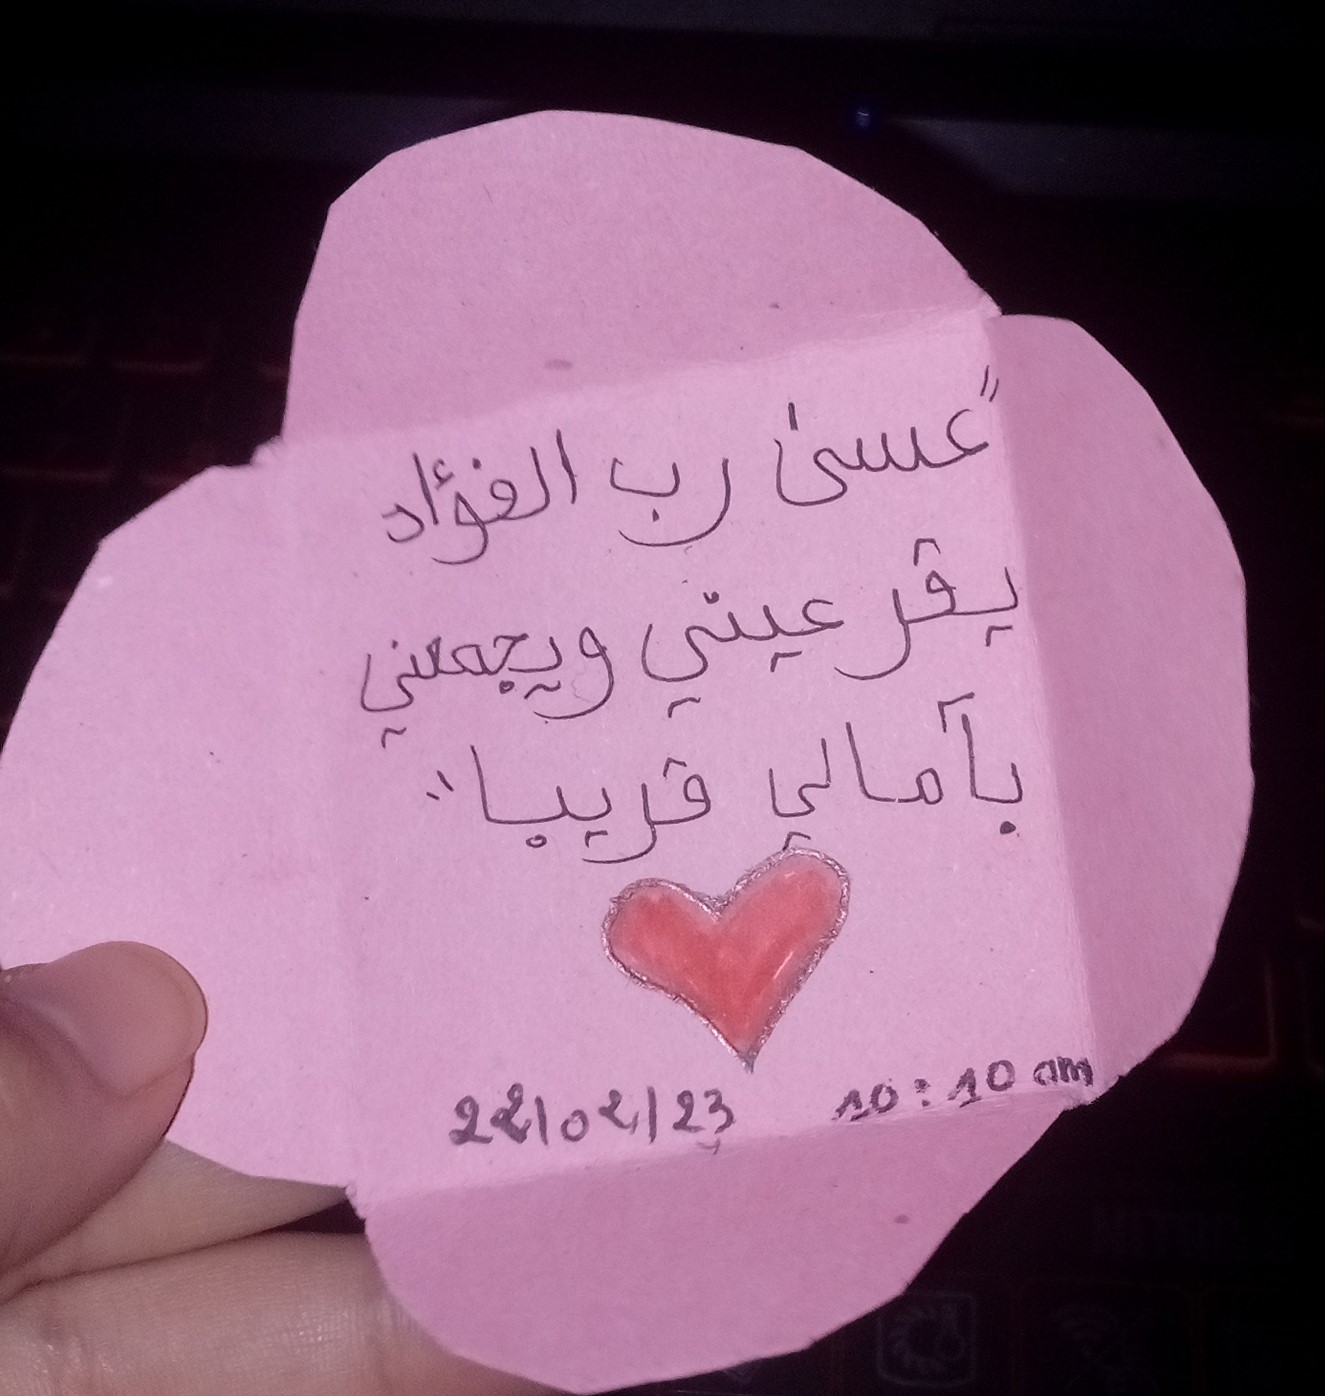 "عسىٰ رب الفؤاد
يقر عيني ويجمعني
بآمالي قريبا"
22/02/23 10:10 am